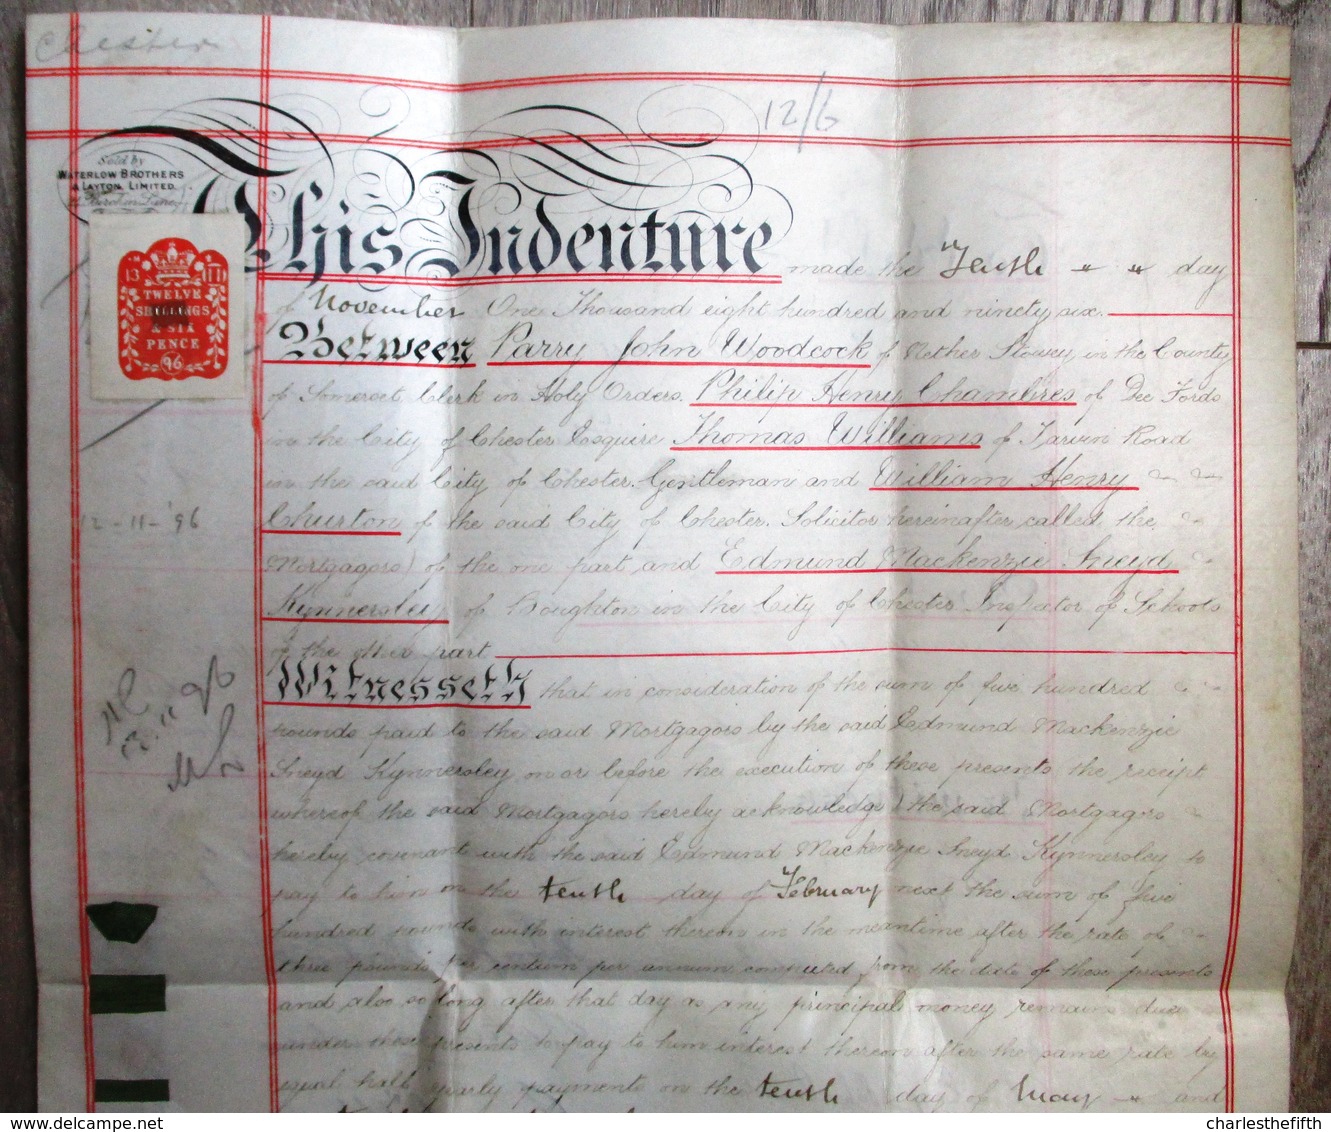 Chester
12/6
Sold by
WATERLOW BROTHERS
& LAYTON, LIMITED.
Birchin Lane
13 111
TWELVE
SHILLINGS
& SIX
PENCE
96
This Indenture made the Tenth day
of November One Thousand eight hundred and ninety six.
Between Parry John Woodcock of Nether Stowey in the County
of Somerset Clerk in Holy Orders Philip Henry Chambres of Dee Fords
in the City of Chester Esquire Thomas Williams of Tarvin Road
in the said City of Chester Gentleman and William Henry
Churton of the said City of Chester Solicitor hereinafter called the
Mortgagors) of the one part and Edmund Mackenzie Sneyd
Kynnersley of Boughton in the City of Chester Inspector of Schools
of the other part
Witnesseth that in consideration of the sum of five hundred
pounds paid to the said Mortgagors by the said Edmund Mackenzie
Sneyd Kynnersley on or before the execution of these presents the receipt
whereof the said Mortgagors hereby acknowledge) the said Mortgagors
hereby covenant with the said Edmund Mackenzie Sneyd Kynnersley to
pay to him on the tenth day of February next the sum of five
hundred pounds with interest thereon in the meantime after the rate of
three pounds per centum per annum computed from the date of these presents
and also so long after that day as any principal money remains due
under these presents to pay to him interest thereon after the same rate by
equal half yearly payments on the tenth day of May and
12-11-'96
charlesthefifth